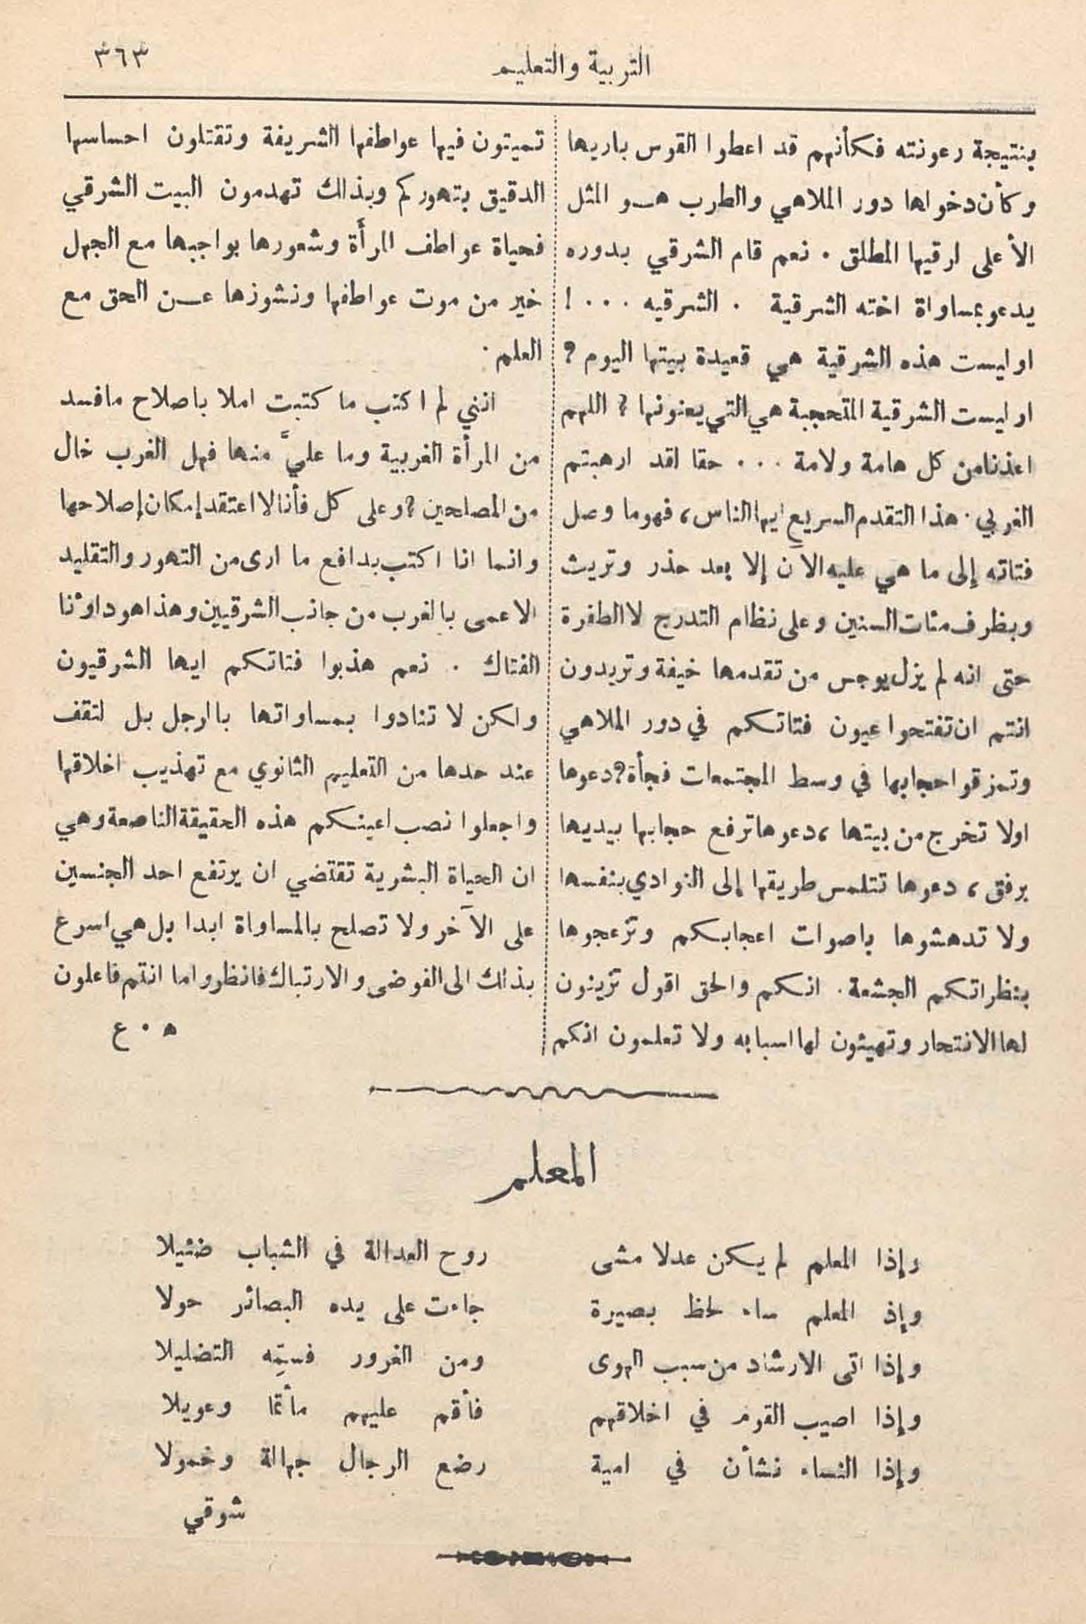 التربية والتعليم
٣٦٣
بنتيجة رعونته فكأنهم قد اعطوا القوس باريها
وكأن دخولها دور الملاهي والطرب هو المثل
الأعلى لرقيها المطلق . نعم قام الشرقي بدوره
يدعو بمساواة اخته الشرقية . الشرقيه . . . !
او ليست هذه الشرقية هي قعيدة بيتها اليوم ?
او ليست الشرقية المتحجبة هي التي يعنونها ? اللهم
اعذنا من كل هامة ولامة . . . حقا لقد ارهبتم
الغربي . هذا التقدم السريع ايها الناس ، فهو ما وصل
فتاته إلى ما هي عليه الآن إلا بعد حذر وتريث
وبظرف مئات السنين وعلى نظام التدرج لا الطفرة
حتى انه لم يزل يوجس من تقدمها خيفة وتريدون
انتم ان تفتحوا عيون فتاتكم في دور الملاهي
وتمزقوا حجابها في وسط المجتمعات فجأة ? دعوها
اولا تخرج من بيتها ، دعوها ترفع حجابها بيديها
برفق ، دعوها تتلمس طريقها إلى النوادي بنفسها
ولا تدهشوها باصوات اعجابكم وتزعجوها
بنظراتكم الجشعة . انكم والحق اقول تزينون
لها الانتحار وتهيئون لها اسبابه ولا تعلمون انكم
تميتون فيها عواطفها الشريفة وتقتلون احساسها
الدقيق بتهوركم وبذلك تهدمون البيت الشرقي
فحياة عواطف المرأة وشعورها بواجبها مع الجهل
خير من موت عواطفها ونشوزها عن الحق مع
العلم .
انني لم اكتب ما كتبت املا باصلاح ما فسد
من المرأة الغربية وما عليَّ منها فهل الغرب خال
من المصلحين ? وعلى كل فأنا لا اعتقد إمكان إصلاحها
وانما انا اكتب بدافع ما ارى من التهور والتقليد
الاعمى بالغرب من جانب الشرقيين وهذا هو داؤنا
الفتاك . نعم هذبوا فتاتكم ايها الشرقيون
ولكن لا تنادوا بمساواتها بالرجل بل لتقف
عند حدها من التعليم الثانوي مع تهذيب اخلاقها
واجعلوا نصب اعينكم هذه الحقيقة الناصعة وهي
ان الحياة البشرية تقتضي ان يرتفع احد الجنسين
على الآخر ولا تصلح بالمساواة ابدا بل هي اسرع
بذلك الى الفوضى والارتباك فانظروا ما انتم فاعلون
ه . ع
المعلم
وإذا المعلم لم يكن عدلا مشى روح العدالة في الشباب ضئيلا
وإذ المعلم ساء لحظ بصيرة جاءت على يده البصائر حولا
وإذا اتى الارشاد من سبب الهوى ومن الغرور فسمِّه التضليلا
وإذا اصيب القوم في اخلاقهم فأقم عليهم مأتما وعويلا
وإذا النساء نشأن في امية رضع الرجال جهالة وخمولا
شوقي